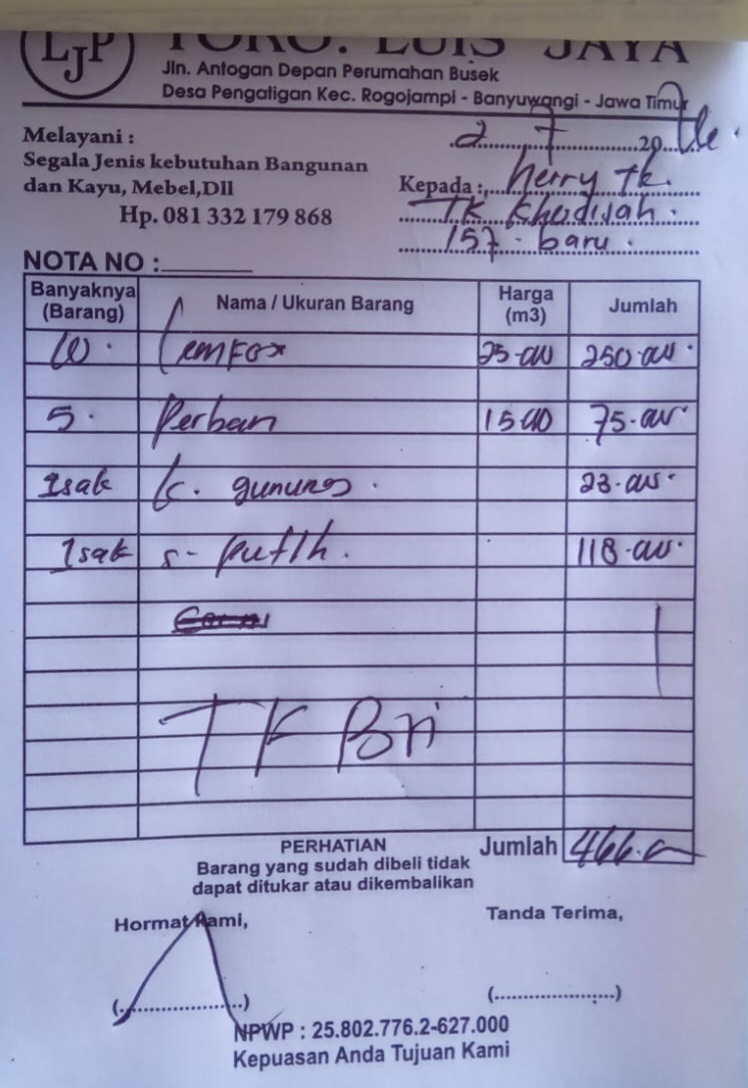 LJP
TOKO. LUIS JAYA
Jln. Antogan Depan Perumahan Busek
Desa Pengatigan Kec. Rogojampi - Banyuwangi - Jawa Timur
Melayani :
Segala Jenis kebutuhan Bangunan
dan Kayu, Mebel,Dll
Hp. 081 332 179 868
2 7 20
Kepada : herry tk.
TK Khadijah .
157 - baru .
NOTA NO :
Banyaknya (Barang) Nama / Ukuran Barang Harga (m3) Jumlah
10 . lemFox 25.000 250.000
5. Perban 15.000 75.000
1sak k. gunung . 23.000
1sak s- putih . 118.000
TF Bri
PERHATIAN Jumlah 466.000
Barang yang sudah dibeli tidak
dapat ditukar atau dikembalikan
Hormat Kami, Tanda Terima,
(....................) (....................)
NPWP : 25.802.776.2-627.000
Kepuasan Anda Tujuan Kami